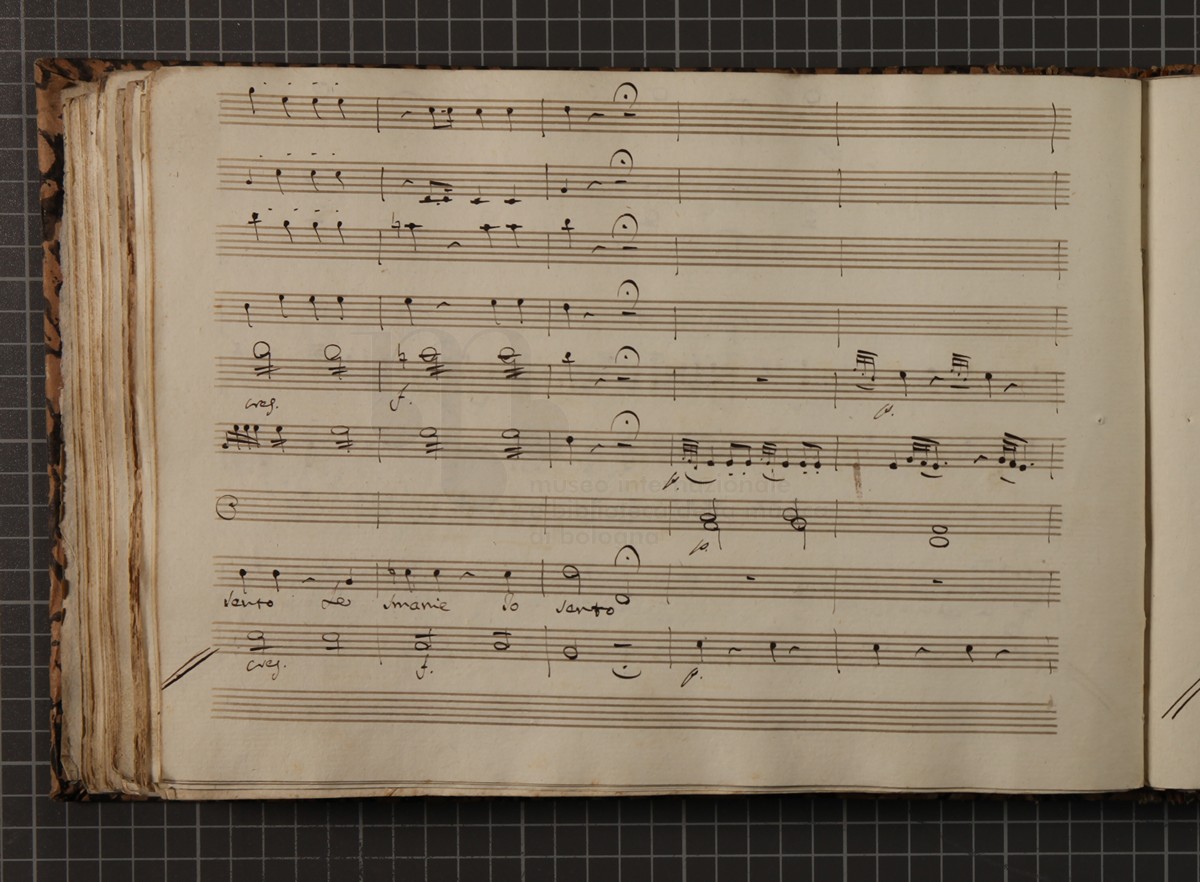 cres.
f.
p.
p.
museo internazionale
e biblioteca della musica
di bologna
p.
sento Le smanie Io sento
cres. f. p.